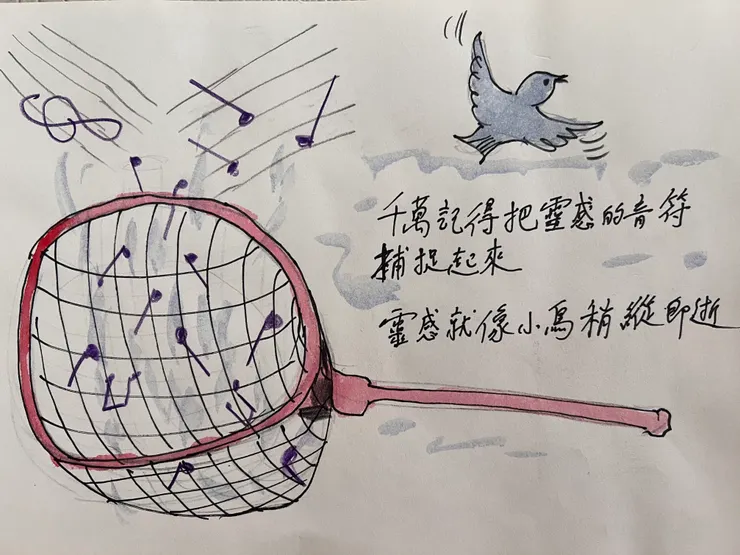 千萬記得把靈感的音符
捕捉起來
靈感就像小鳥稍縱即逝